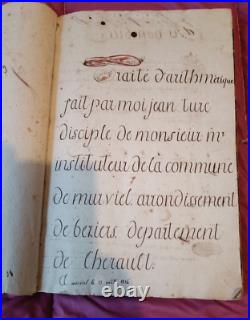 Traité d'arithmatique
fait par moi jean turc
disciple de monsieur mr
instituteur de la commune
de murviel arrondissement
de beziers departement
de L'herault.